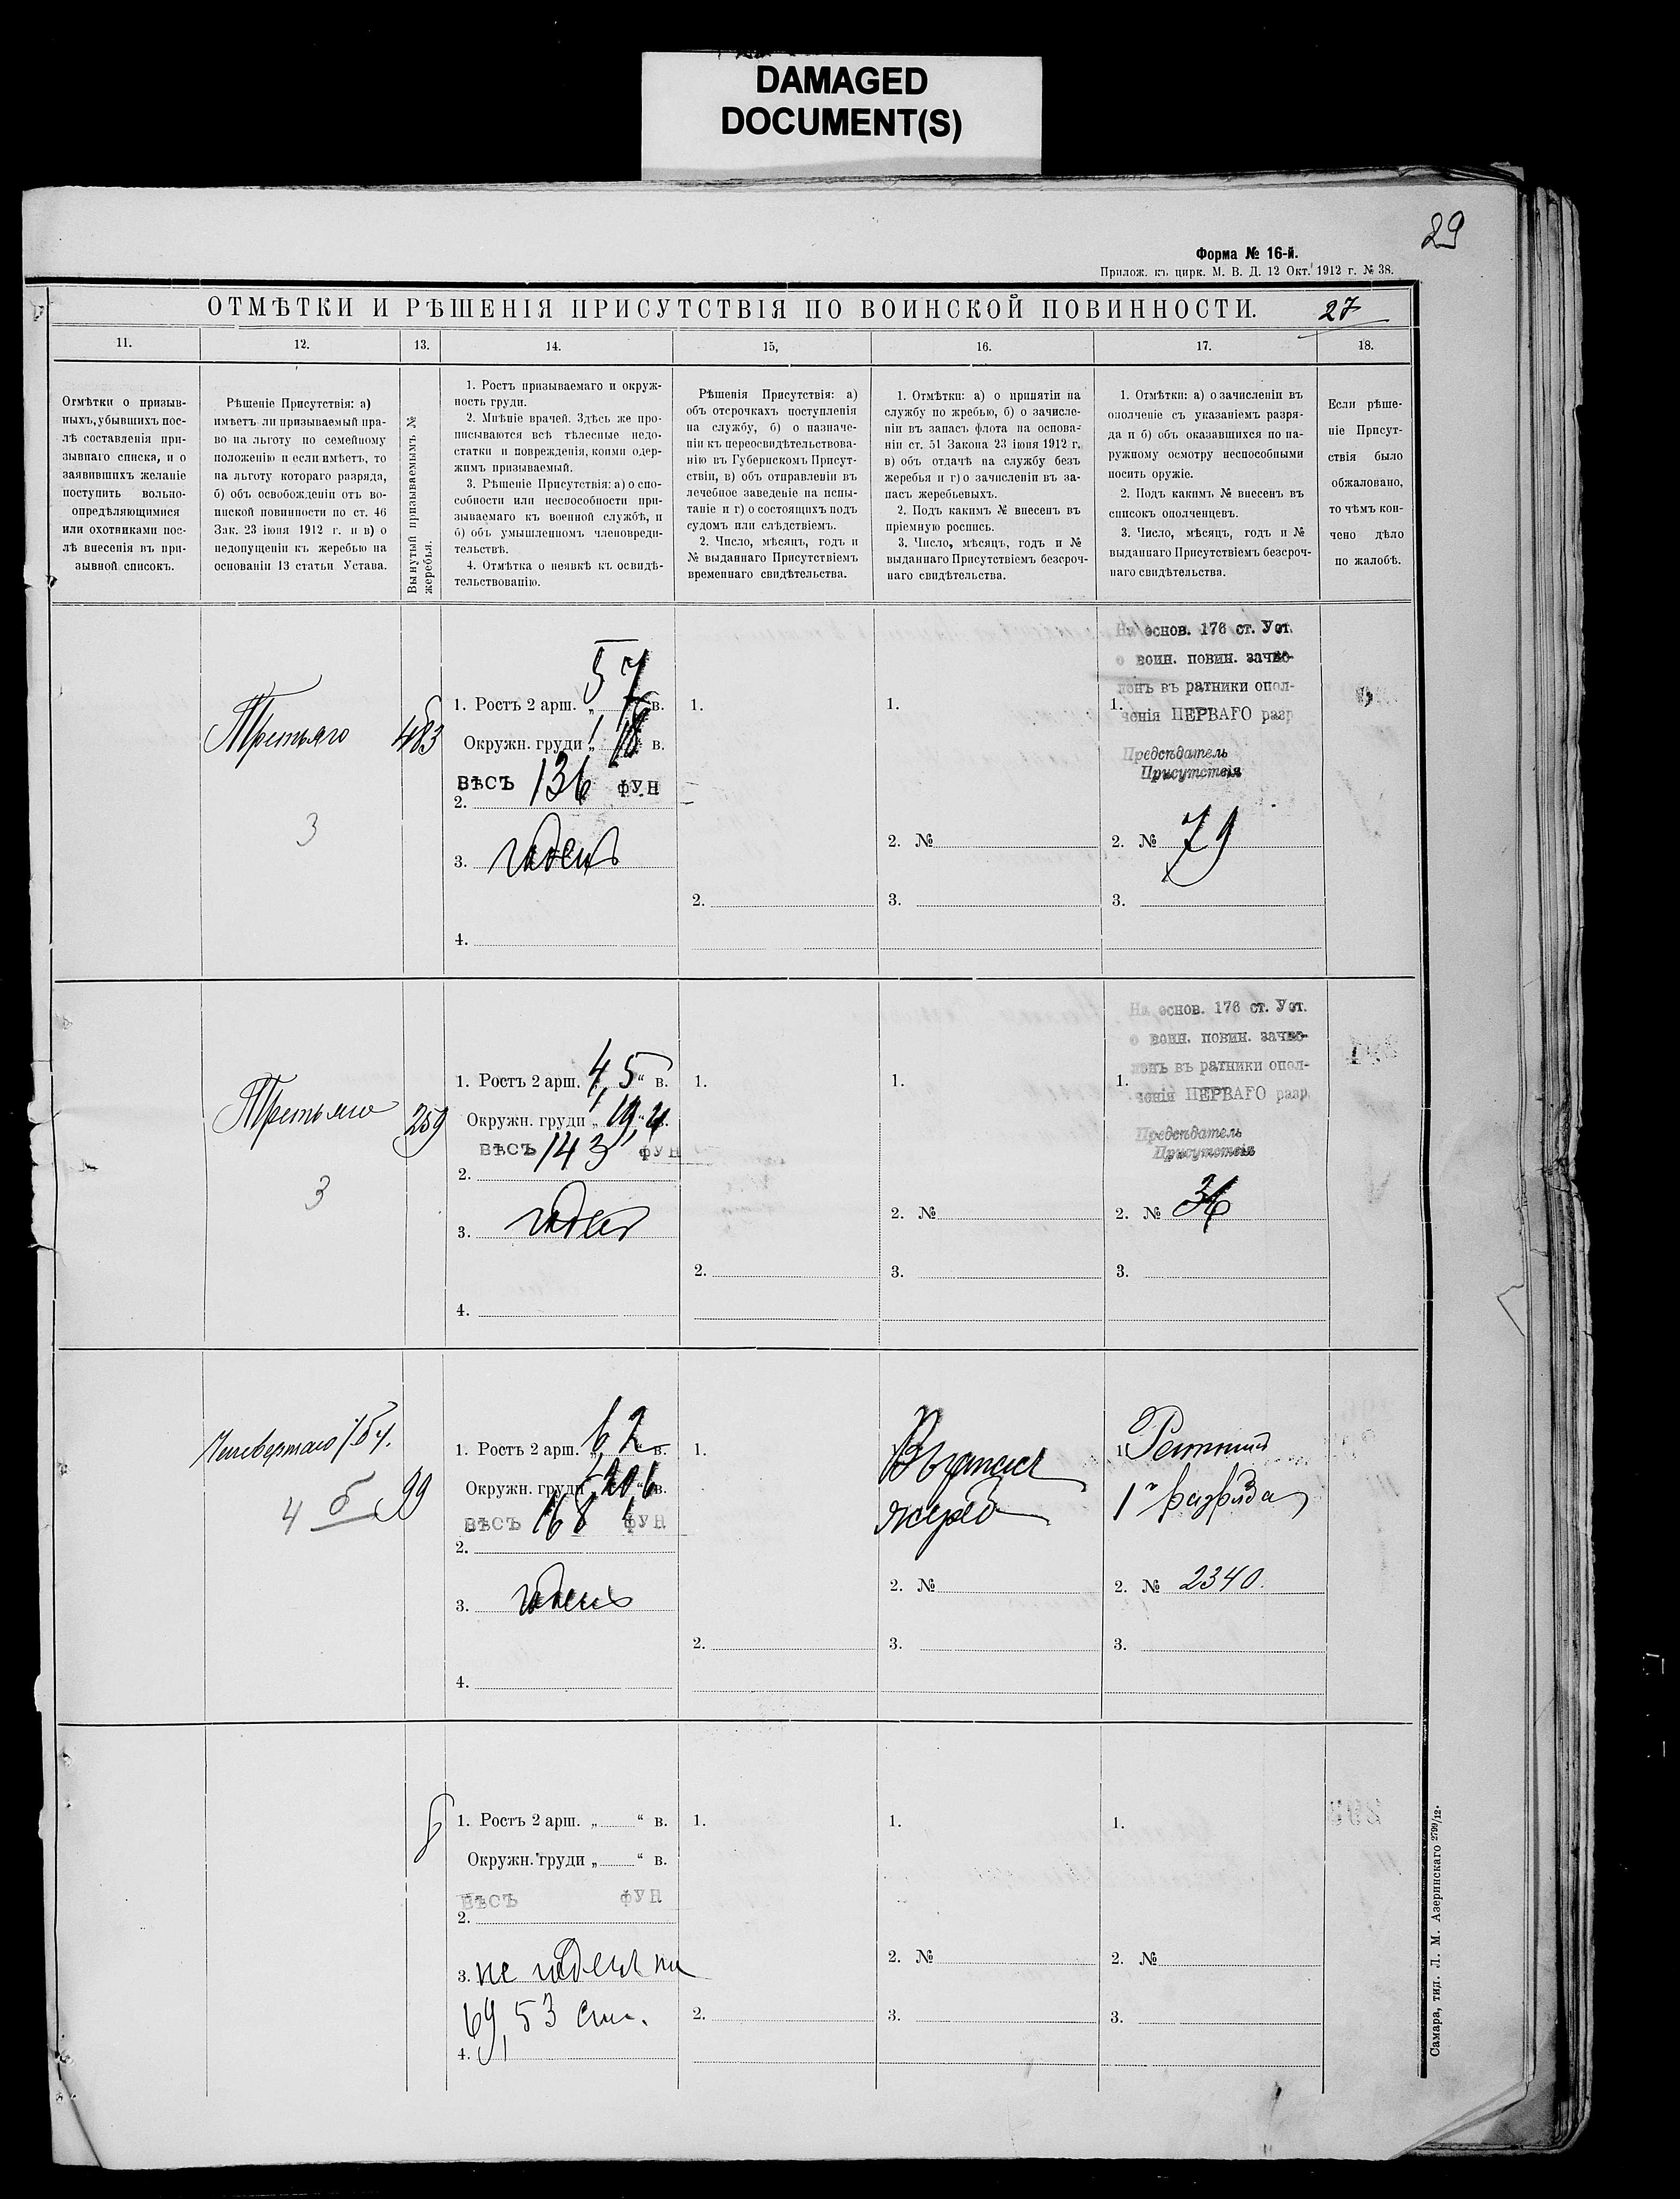 DAMAGED
DOCUMENT(S)
29
Форма № 16-й.
Прилож. къ цирк. М. В. Д. 12 Окт. 1912 г. № 38.
ОТМѢТКИ И РѢШЕНІЯ ПРИСУТСТВІЯ ПО ВОИНСКОЙ ПОВИННОСТИ.
27
11.
12.
13.
14.
15,
16.
17.
18.
Отмѣтки о призыв-
ныхъ, убывшихъ пос-
лѣ составленія при-
зывнаго списка, и о
заявившихъ желаніе
поступить вольно-
опредѣляющимися
или охотниками пос-
лѣ внесенія въ при-
зывной списокъ.
Рѣшеніе Присутствія: а)
имѣетъ ли призываемый пра-
во на льготу по семейному
положенію и если имѣетъ, то
на льготу котораго разряда,
б) объ освобожденіи отъ во-
инской повинности по ст. 46
Зак. 23 іюня 1912 г. и в) о
недопущеніи къ жеребью на
основаніи 13 статьи Устава.
Вынутый призываемымъ №
жеребья.
1. Ростъ призываемаго и окруж-
ность груди.
2. Мнѣніе врачей. Здѣсь же про-
писываются всѣ тѣлесные недо-
статки и поврежденія, коими одер-
жимъ призываемый.
3. Рѣшеніе Присутствія: а) о спо-
собности или неспособности при-
зываемаго къ военной службѣ, и
б) объ умышленномъ членовреди-
тельствѣ.
4. Отмѣтка о неявкѣ къ освидѣ-
тельствованію.
Рѣшенія Присутствія: а)
объ отсрочкахъ поступленія
на службу, б) о назначе-
ніи къ переосвидѣтельствова-
нію въ Губернскомъ Присут-
ствіи, в) объ отправленіи въ
лечебное заведеніе на испы-
таніе и г) о состоящихъ подъ
судомъ или слѣдствіемъ.
2. Число, мѣсяцъ, годъ и
№ выданнаго Присутствіемъ
временнаго свидѣтельства.
1. Отмѣтки: а) о принятіи на
службу по жребью, б) о зачисле-
ніи въ запасъ флота на основа-
ніи ст. 51 Закона 23 іюня 1912 г.
в) объ отдачѣ на службу безъ
жеребья и г) о зачисленіи въ за-
пасъ жеребьевыхъ.
2. Подъ какимъ № внесенъ въ
пріемную роспись.
3. Число, мѣсяцъ, годъ и №
выданнаго Присутствіемъ безсроч-
наго свидѣтельства.
1. Отмѣтки: а) о зачисленіи въ
ополченіе съ указаніемъ разря-
да и б) объ оказавшихся по на-
ружному осмотру неспособными
носить оружіе.
2. Подъ какимъ № внесенъ въ
списокъ ополченцевъ.
3. Число, мѣсяцъ, годъ и №
выданнаго Присутствіемъ безсроч-
наго свидѣтельства.
Если рѣше-
ніе Присут-
ствія было
обжаловано,
то чѣмъ кон-
чено дѣло
по жалобѣ.
Третьяго
3
483
1. Ростъ 2 арш. „ 5 7 в.
Окружн. груди „ 18 в.
ВѢСЪ 136 ФУН
2.
3. годенъ
4.
1.
2.
1.
2. №
3.
На основ. 176 ст. Уст.
о воин. повин. зачис-
ленъ въ ратники опол-
1. ченія ПЕРВАГО разр
Предсѣдатель
Присутствія
2. № 79
3.
Третьяго
3
259
1. Ростъ 2 арш. 4, 5 “ в.
Окружн. груди „ 19
ВѢСЪ 143 ФУН
2.
3. годенъ
4.
1.
2.
1.
2. №
3.
На основ. 176 ст. Уст.
о воин. повин. зачис-
ленъ въ ратники опол-
1. ченія ПЕРВАГО разр
Предсѣдатель
Присутствія
2. № 36
3.
Четвертаго
4 б
99
1. Ростъ 2 арш. 6 2 в.
Окружн. груди 20 6 в.
ВѢСЪ 168 ФУН
2.
3. годенъ
4.
1.
2.
Въ запасъ
жереб
2. №
3.
1. Ратникъ
1го разряда
2. № 2340.
3.
1. Ростъ 2 арш. „ “ в.
Окружн. груди „ “ в.
ВѢСЪ ФУН
2.
3. не годенъ по
69, 53 ст.
4.
1.
2.
1.
2. №
3.
1.
2. №
3.
Самара, тип. Л. М. Азеринскаго 2799/12.